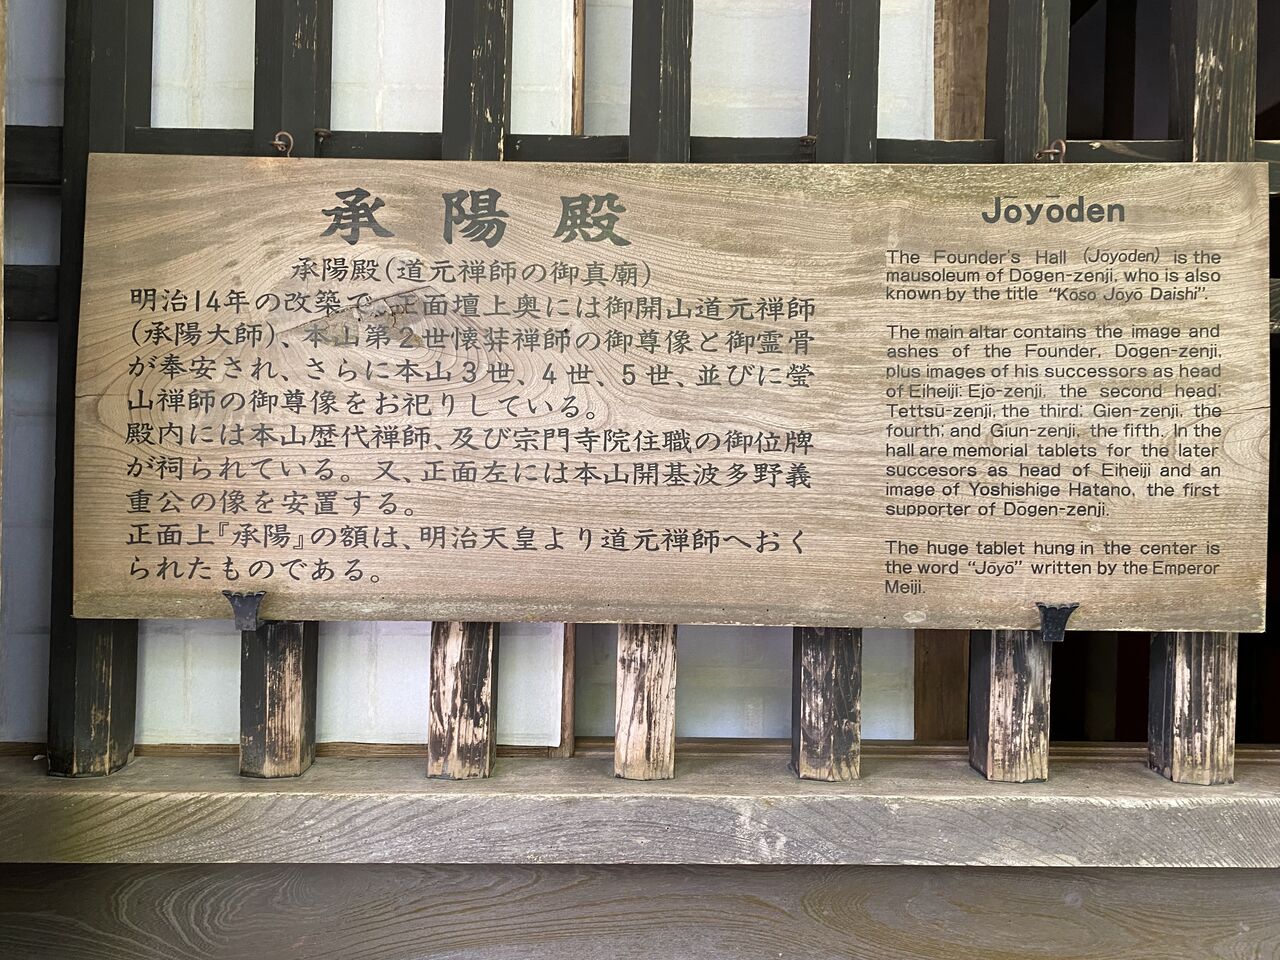 承陽殿
承陽殿(道元禅師の御真廟)
明治14年の改築で、正面壇上奥には御開山道元禅師
(承陽大師)、本山第2世懐弉禅師の御尊像と御霊骨
が奉安され、さらに本山3世、4世、5世、並びに瑩
山禅師の御尊像をお祀りしている。
殿内には本山歴代禅師、及び宗門寺院住職の御位牌
が祠られている。又、正面左には本山開基波多野義
重公の像を安置する。
正面上『承陽』の額は、明治天皇より道元禅師へおく
られたものである。
Jōyōden
The Founder's Hall (Jōyoden) is the
mausoleum of Dōgen-zenji, who is also
known by the title “Kōso Jōyō Daishi”.
The main altar contains the image and
ashes of the Founder, Dōgen-zenji,
plus images of his successors as head
of Eiheiji: Ejō-zenji, the second head;
Tettsū-zenji, the third; Gien-zenji, the
fourth; and Giun-zenji, the fifth. In the
hall are memorial tablets for the later
succesors as head of Eiheiji and an
image of Yoshishige Hatano, the first
supporter of Dōgen-zenji.
The huge tablet hung in the center is
the word “Jōyō” written by the Emperor
Meiji.